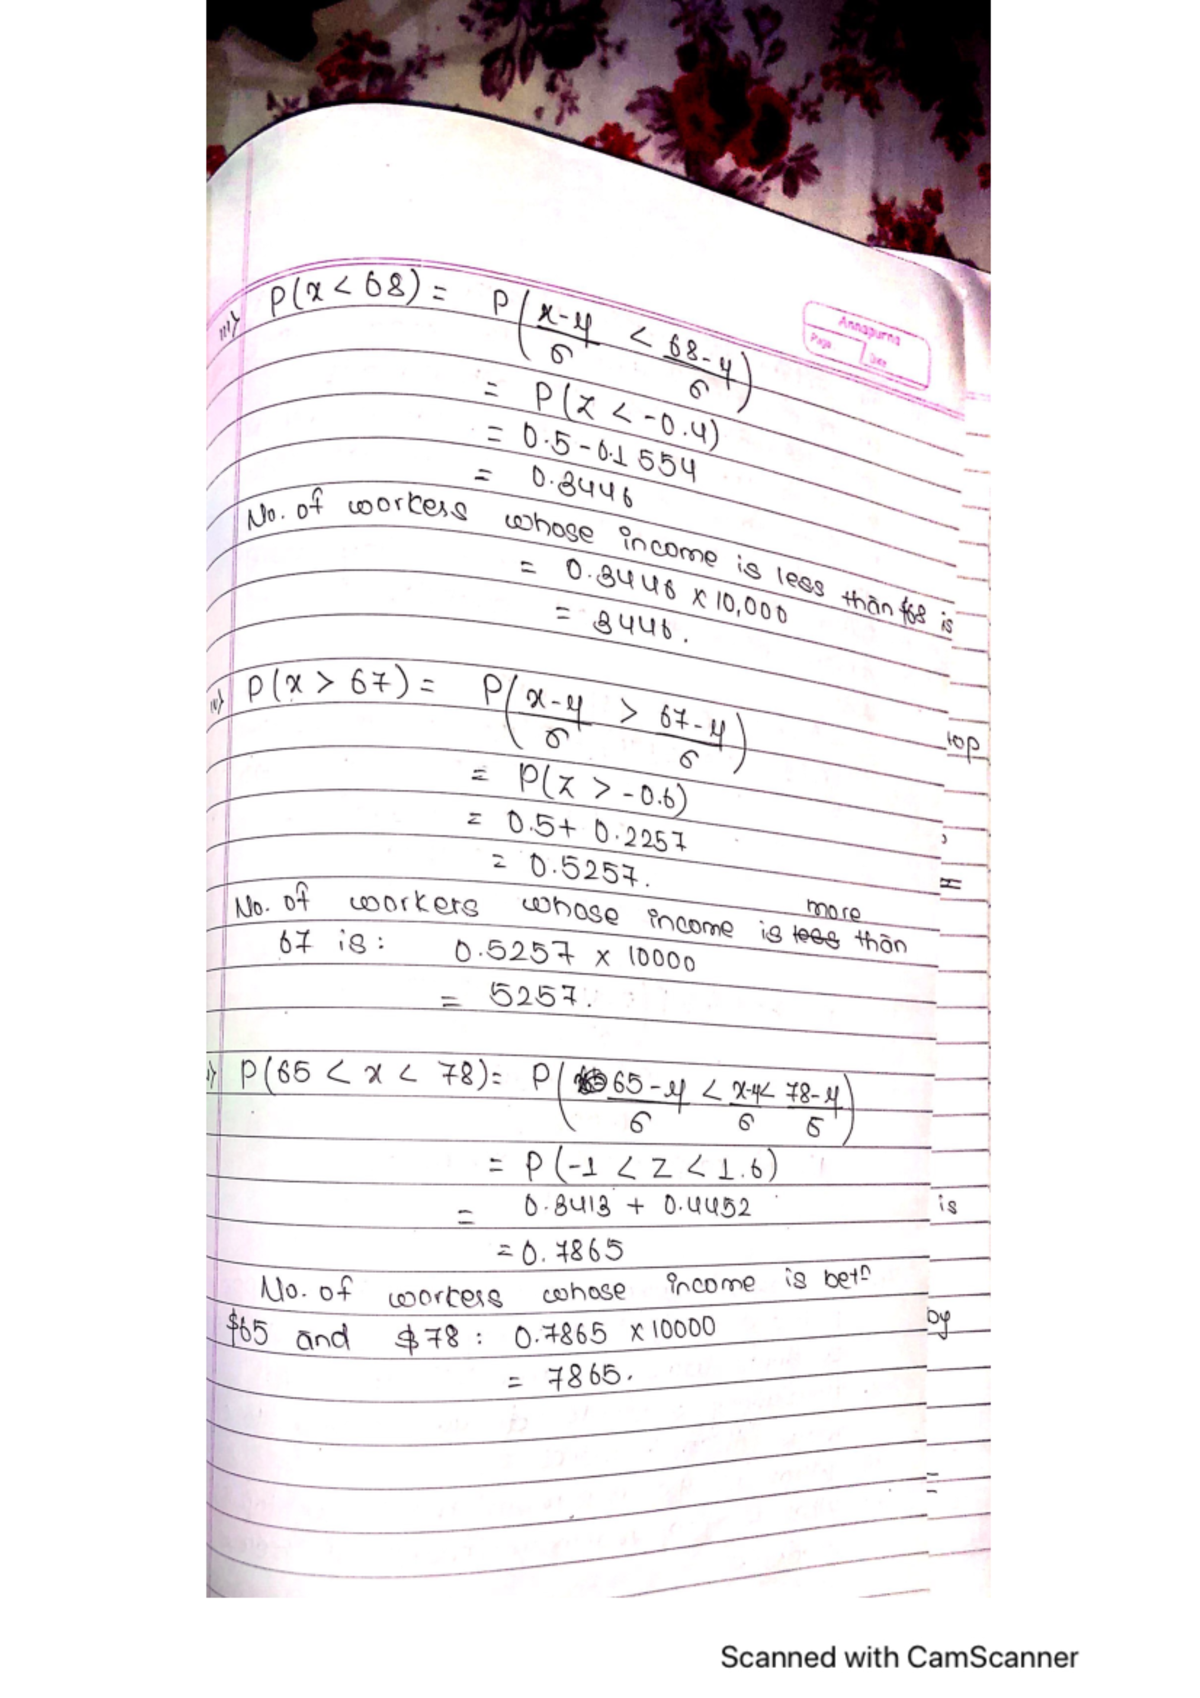 iii) P(x < 68) = P(x-μ/σ < 68-μ/σ)
Annapurna
Page
Date
= P(Z < -0.4)
= 0.5 - 0.1554
= 0.3446
No. of workers whose income is less than $68 is
= 0.3446 x 10,000
= 3446.
iv) P(x > 67) = P(x-μ/σ > 67-μ/σ)
= P(Z > -0.6)
= 0.5 + 0.2257
= 0.5257.
No. of workers whose income is more than
67 is: 0.5257 x 10000
= 5257.
P(65 < x < 78) = P(65-μ/σ < x-μ/σ < 78-μ/5)
= P(-1 < Z < 1.6)
= 0.3413 + 0.4452
= 0.7865
No. of workers whose income is betn
$65 and $78 : 0.7865 x 10000
= 7865.
is
by
Scanned with CamScanner